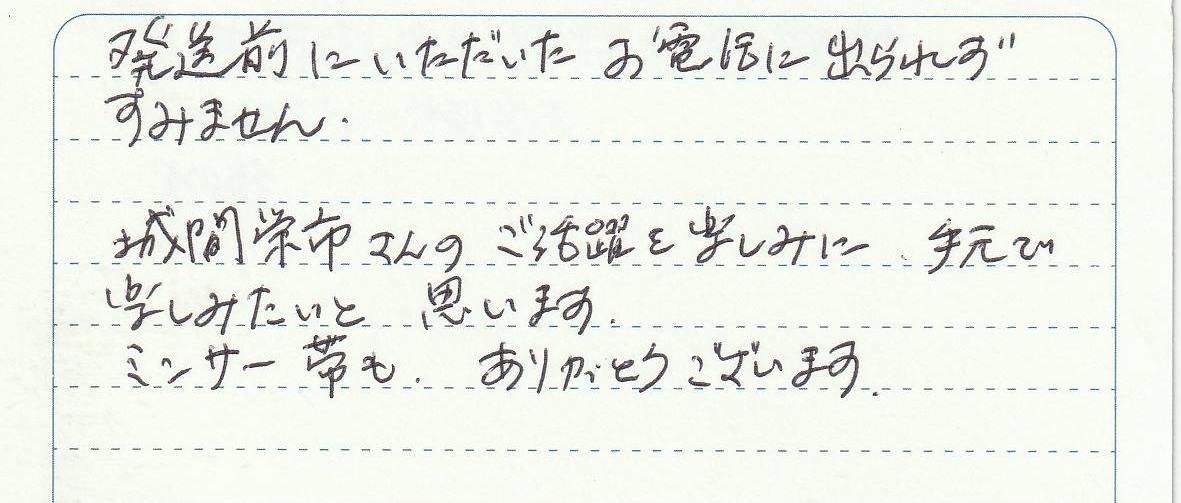 発送前にいただいた お電話に 出られず
すみません.
城間栄市さんの ご活躍を 楽しみに 手元で
楽しみたいと 思います.
ミンサー帯も. ありがとうございます.